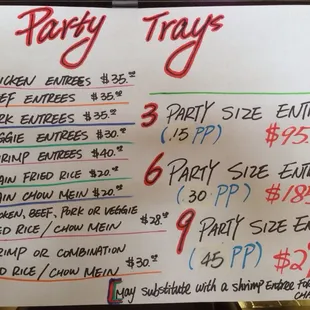 Party Trays
HICKEN ENTREES $35.00
EEF ENTREES $35.00
RK ENTREES $35.00
EGGIE ENTREES $30.00
HRIMP ENTREES $40.00
AIN FRIED RICE $20.00
AIN CHOW MEIN $20.00
CKEN, BEEF, PORK OR VEGGIE
ED RICE / CHOW MEIN $28.00
RIMP OR COMBINATION
ED RICE / CHOW MEIN $30.00
3 PARTY SIZE ENT
(.15 PP) $95.
6 PARTY SIZE EN
(.30 PP) $185
9 PARTY SIZE E
(45 PP) $2
May substitute with a shrimp Entree FOR
CHA